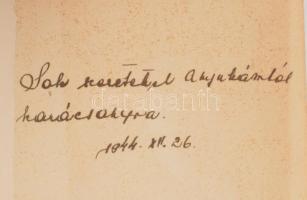 Sok szeretettel Anyukámtól
karácsonyra.
1944. XII. 26.